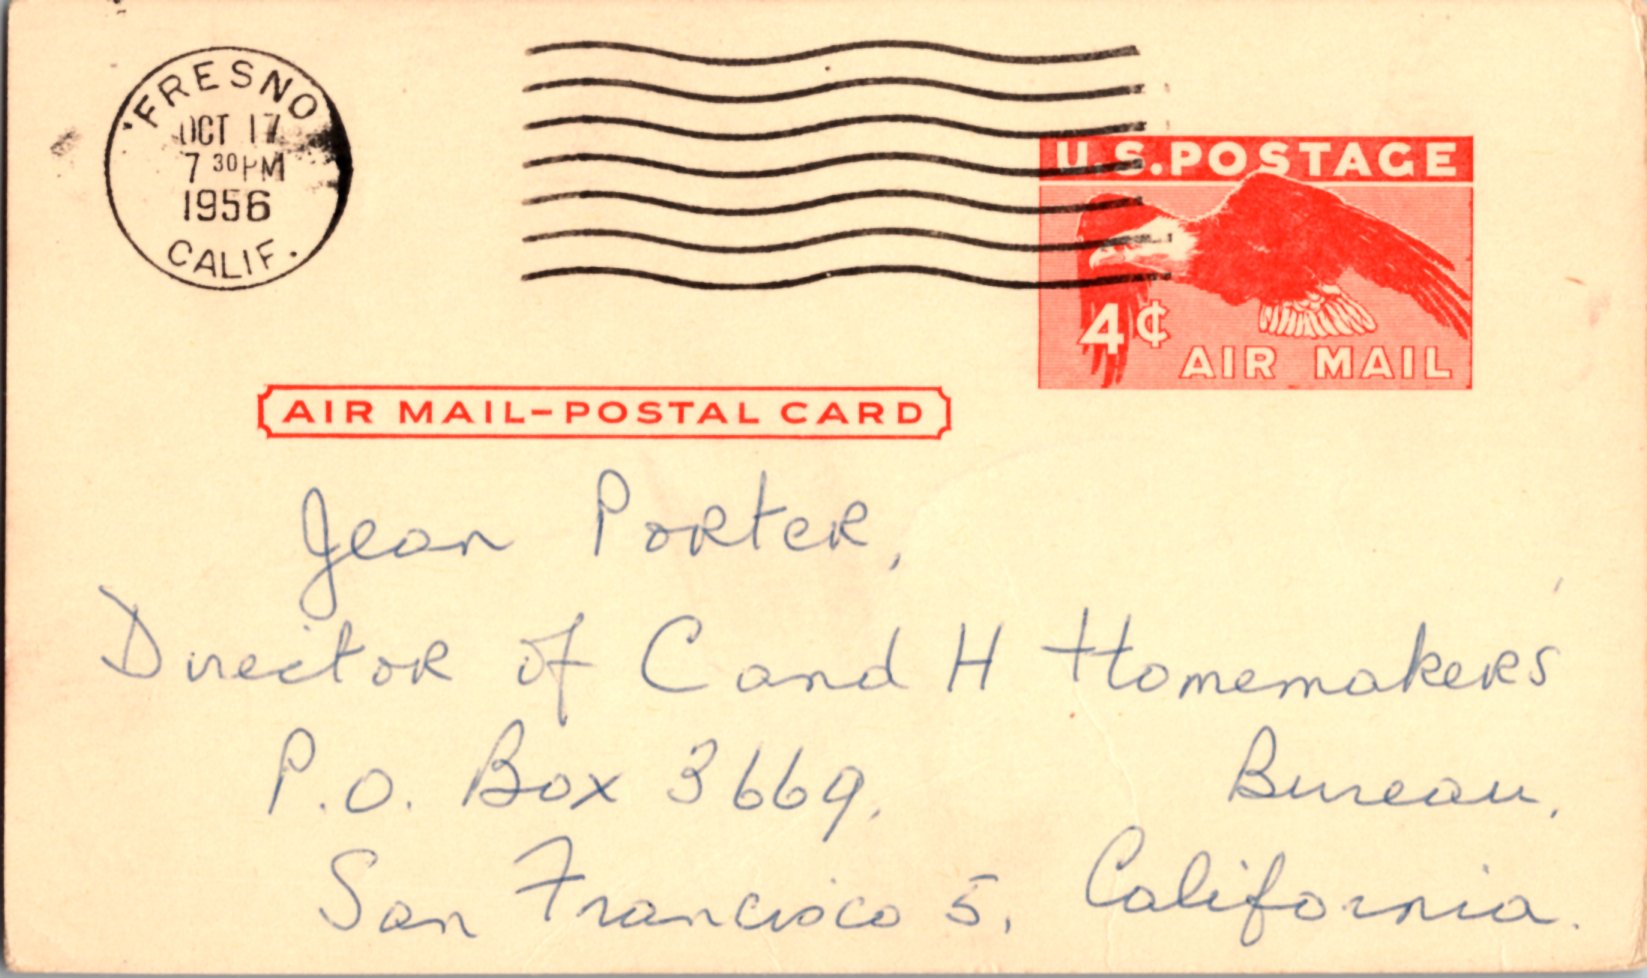 FRESNO
OCT 17
7 30 PM
1956
CALIF.
U.S. POSTAGE
4¢
AIR MAIL
AIR MAIL-POSTAL CARD
Jean Porter,
Director of C and H Homemakers
Bureau,
P.O. Box 3669,
San Francisco 5, California.